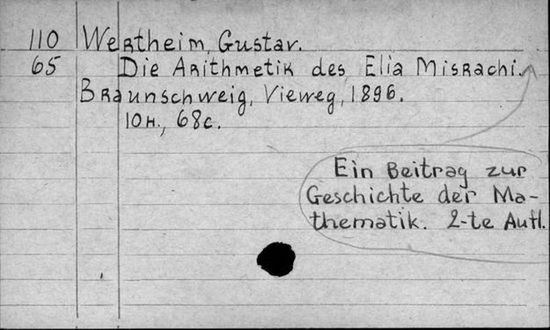 110 Wertheim, Gustav.
65 Die Arithmetik des Elia Misrachi.
Braunschweig, Vieweg, 1896.
10н., 68с.
Ein Beitrag zur
Geschichte der Ma-
thematik. 2-te Aufl.